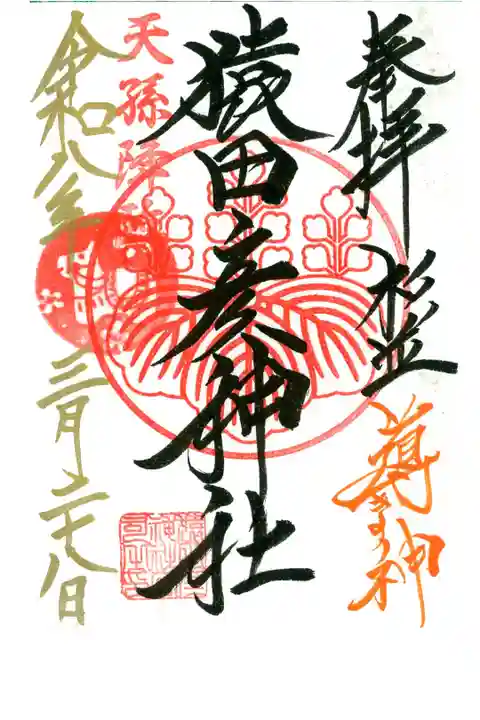 奉拝
杉並
導き神
猿田彦神社
天孫降
令和八年
三月二十八日